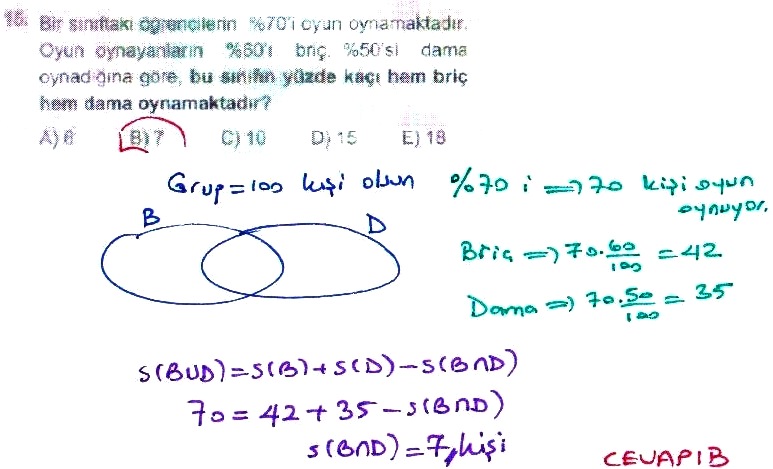 15. Bir sınıftaki öğrencilerin %70'i oyun oynamaktadır.
Oyun oynayanların %60'ı briç, %50'si dama
oynadığına göre, bu sınıfın yüzde kaçı hem briç
hem dama oynamaktadır?
A) 6 B) 7 C) 10 D) 15 E) 18
Grup = 100 kişi olsun
%70 i ⇒ 70 kişi oyun
oynuyor.
B D
Briç ⇒ 70.60/100 = 42
Dama ⇒ 70.50/100 = 35
s(B∪D) = s(B) + s(D) - s(B∩D)
70 = 42 + 35 - s(B∩D)
s(B∩D) = 7 kişi
CEVAP B